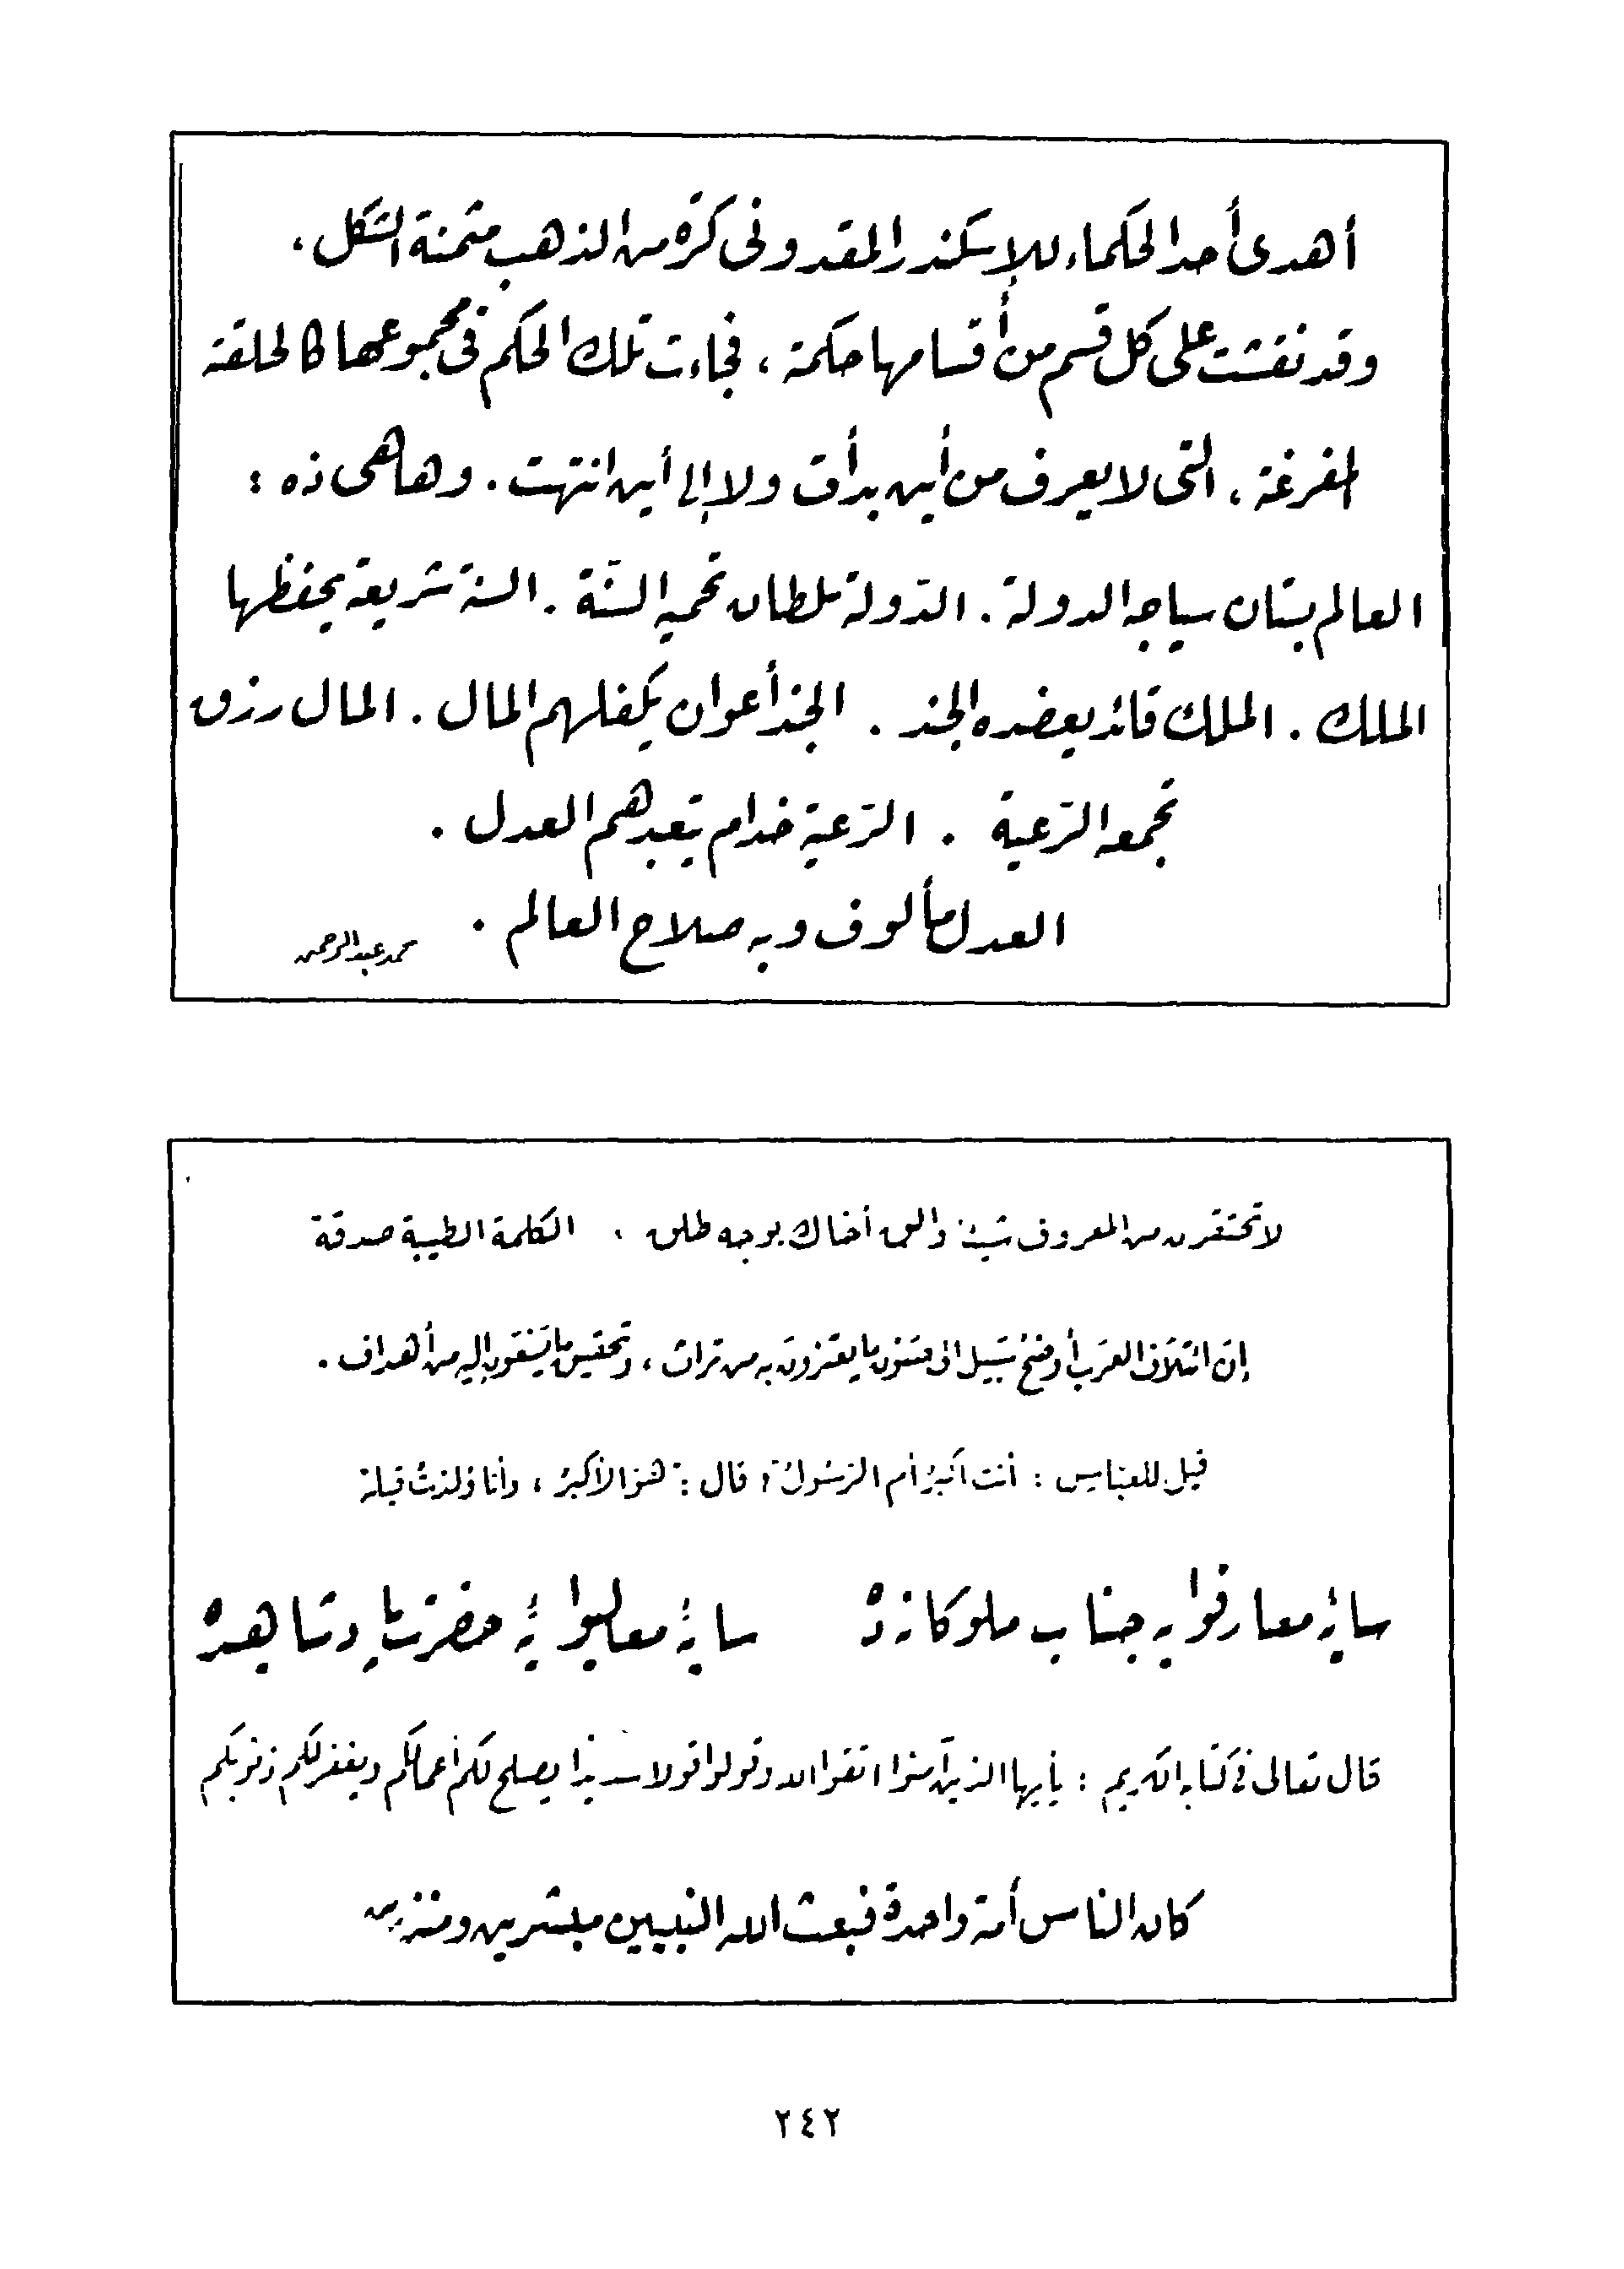 أهدى أحد الحكماء للإسكندر المقدونى كرة من الذهب مثمنة الشكل،
وقد نقشت على كل قسم من أقسامها حكمة ، فجاءت تلك الحكم فى مجموعها كالحلقة
المفرغة ، التى لا يعرف من أين بدأت ولا إلى أين انتهت . وها هى ذه :
العالم بستان سياجه الدولة . الدّولة سلطان تحميه السّنّة . السنة شريعة يحفظها
الملك . الملك قائد يعضده الجند . الجند أعوان يكفلهم المال . المال رزق
تجمعه الرّعية . الرّعية خدام يتعبدهم العدل .
العدل مألوف وبه صلاح العالم .
محمد عبد الرحمن
لا تحتقرن من المعروف شيئا والق أخاك بوجه طلق . الكلمة الطيبة صدقة
إنّ ائتلاف العرب أوضح سبيل الى ما يعتزون به من تراث ، وتحقيق ما إليه من أهداف .
قيل للعبّاس : أنت أكبر أم الرّسول ؟ قال : هو الأكبر ، وأنا ولدت قبله
سايۀ معارفوايه جناب ملوكانه ده سايۀ معاليوايۀ حضرت ده
قال تعالى فى كتابه الكريم : يأيها الذين آمنوا اتقوا الله وقولوا قولا سديدا يصلح لكم أعمالكم ويغفر لكم ذنوبكم
كان الناس أمة واحدة فبعث الله النبيين مبشرين ومنذرين
٢٤٢